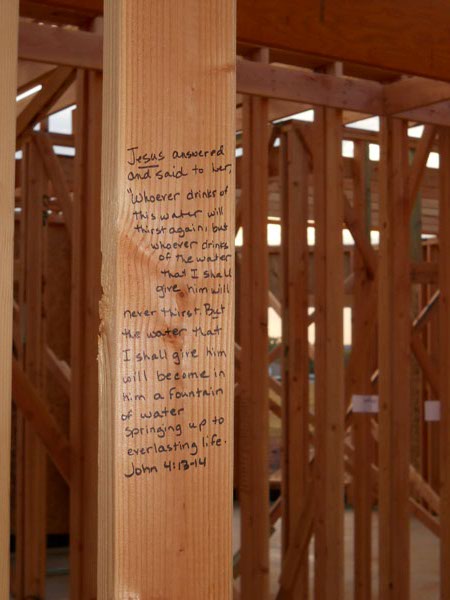 Jesus answered
and said to her,
"Whoever drinks of
this water will
thirst again, but
whoever drinks
of the water
that I shall
give him will
never thirst. But
the water that
I shall give him
will become in
him a fountain
of water
springing up to
everlasting life.
John 4:13-14